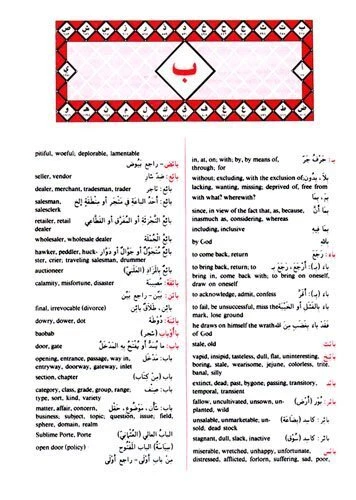 ب
بـ : حَرْفُ جَرّ in, at, on; with; by, by means of, through; for
بلا، بدون without, excluding, with the exclusion of, lacking, wanting, missing; deprived of, free from
بِمَ with what? wherewith?
بما أنّ since, in view of the fact that, as, because, inasmuch as, considering, whereas
بما فيه including, inclusive
بالله by God
باءَ : رَجَعَ to come back, return
باءَ (بـ) : أرْجَعَ، رجع بـ to bring back, return to; to bring in, come back with; to bring on oneself, draw on oneself
باءَ (بـ) : أقَرَّ to acknowledge, admit, confess
باءَ بالفشل أو الخيبة to fail, be unsuccessful, miss the mark, lose ground
فقد باء بغضب من الله he draws on himself the wrath of God
بائت stale, old
vapid, insipid, tasteless, dull, flat, uninteresting, boring, stale, wearisome, jejune, colorless, trite, banal, silly
بائد extinct, dead, past, bygone, passing, transitory, temporal, transient
بائر fallow, uncultivated, unsown, unplanted, wild
بائر : كاسد (بضاعة) unsalable, unmarketable, unsold, dead stock
بائر : كاسد (سوق) stagnant, dull, slack, inactive
بائس miserable, wretched, unhappy, unfortunate, distressed, afflicted, forlorn, suffering, sad, poor,
pitiful, woeful; deplorable, lamentable
بائض - راجع بَيُوض
بائع : ضد شارٍ seller, vendor
بائع : تاجر dealer, merchant, tradesman, trader
بائع في متجر أو منطقة إلخ salesman, salesclerk
بائع التجزئة أو المفرق أو القطاعي retailer, retail dealer
بائع الجملة wholesaler, wholesale dealer
بائع متجول أو جوال أو دوار hawker, peddler, huckster, crier, traveling salesman, drummer
بائع بالمزاد (العلني) auctioneer
بائقة : مصيبة calamity, misfortune, disaster
بائن - راجع بَيِّن
بائن، طلاق بائن final, irrevocable (divorce)
بائنة : دوطة dowry, dower, dot
باأوباب (شجر) baobab
باب : ما يسد أو يفتح به المدخل door, gate
باب : مدخل opening, entrance, passage, way in, entryway, doorway, gateway, inlet
باب (من كتاب) section, chapter
باب : صنف category, class, grade, group, range, type, sort, kind, variety
باب : شأن، موضوع، حقل matter, affair, concern, business, subject, topic; question, issue, field, sphere, domain, realm
الباب العالي (العثماني) Sublime Porte, Porte
(سياسة) الباب المفتوح open door (policy)
من باب أولى - راجع أولى